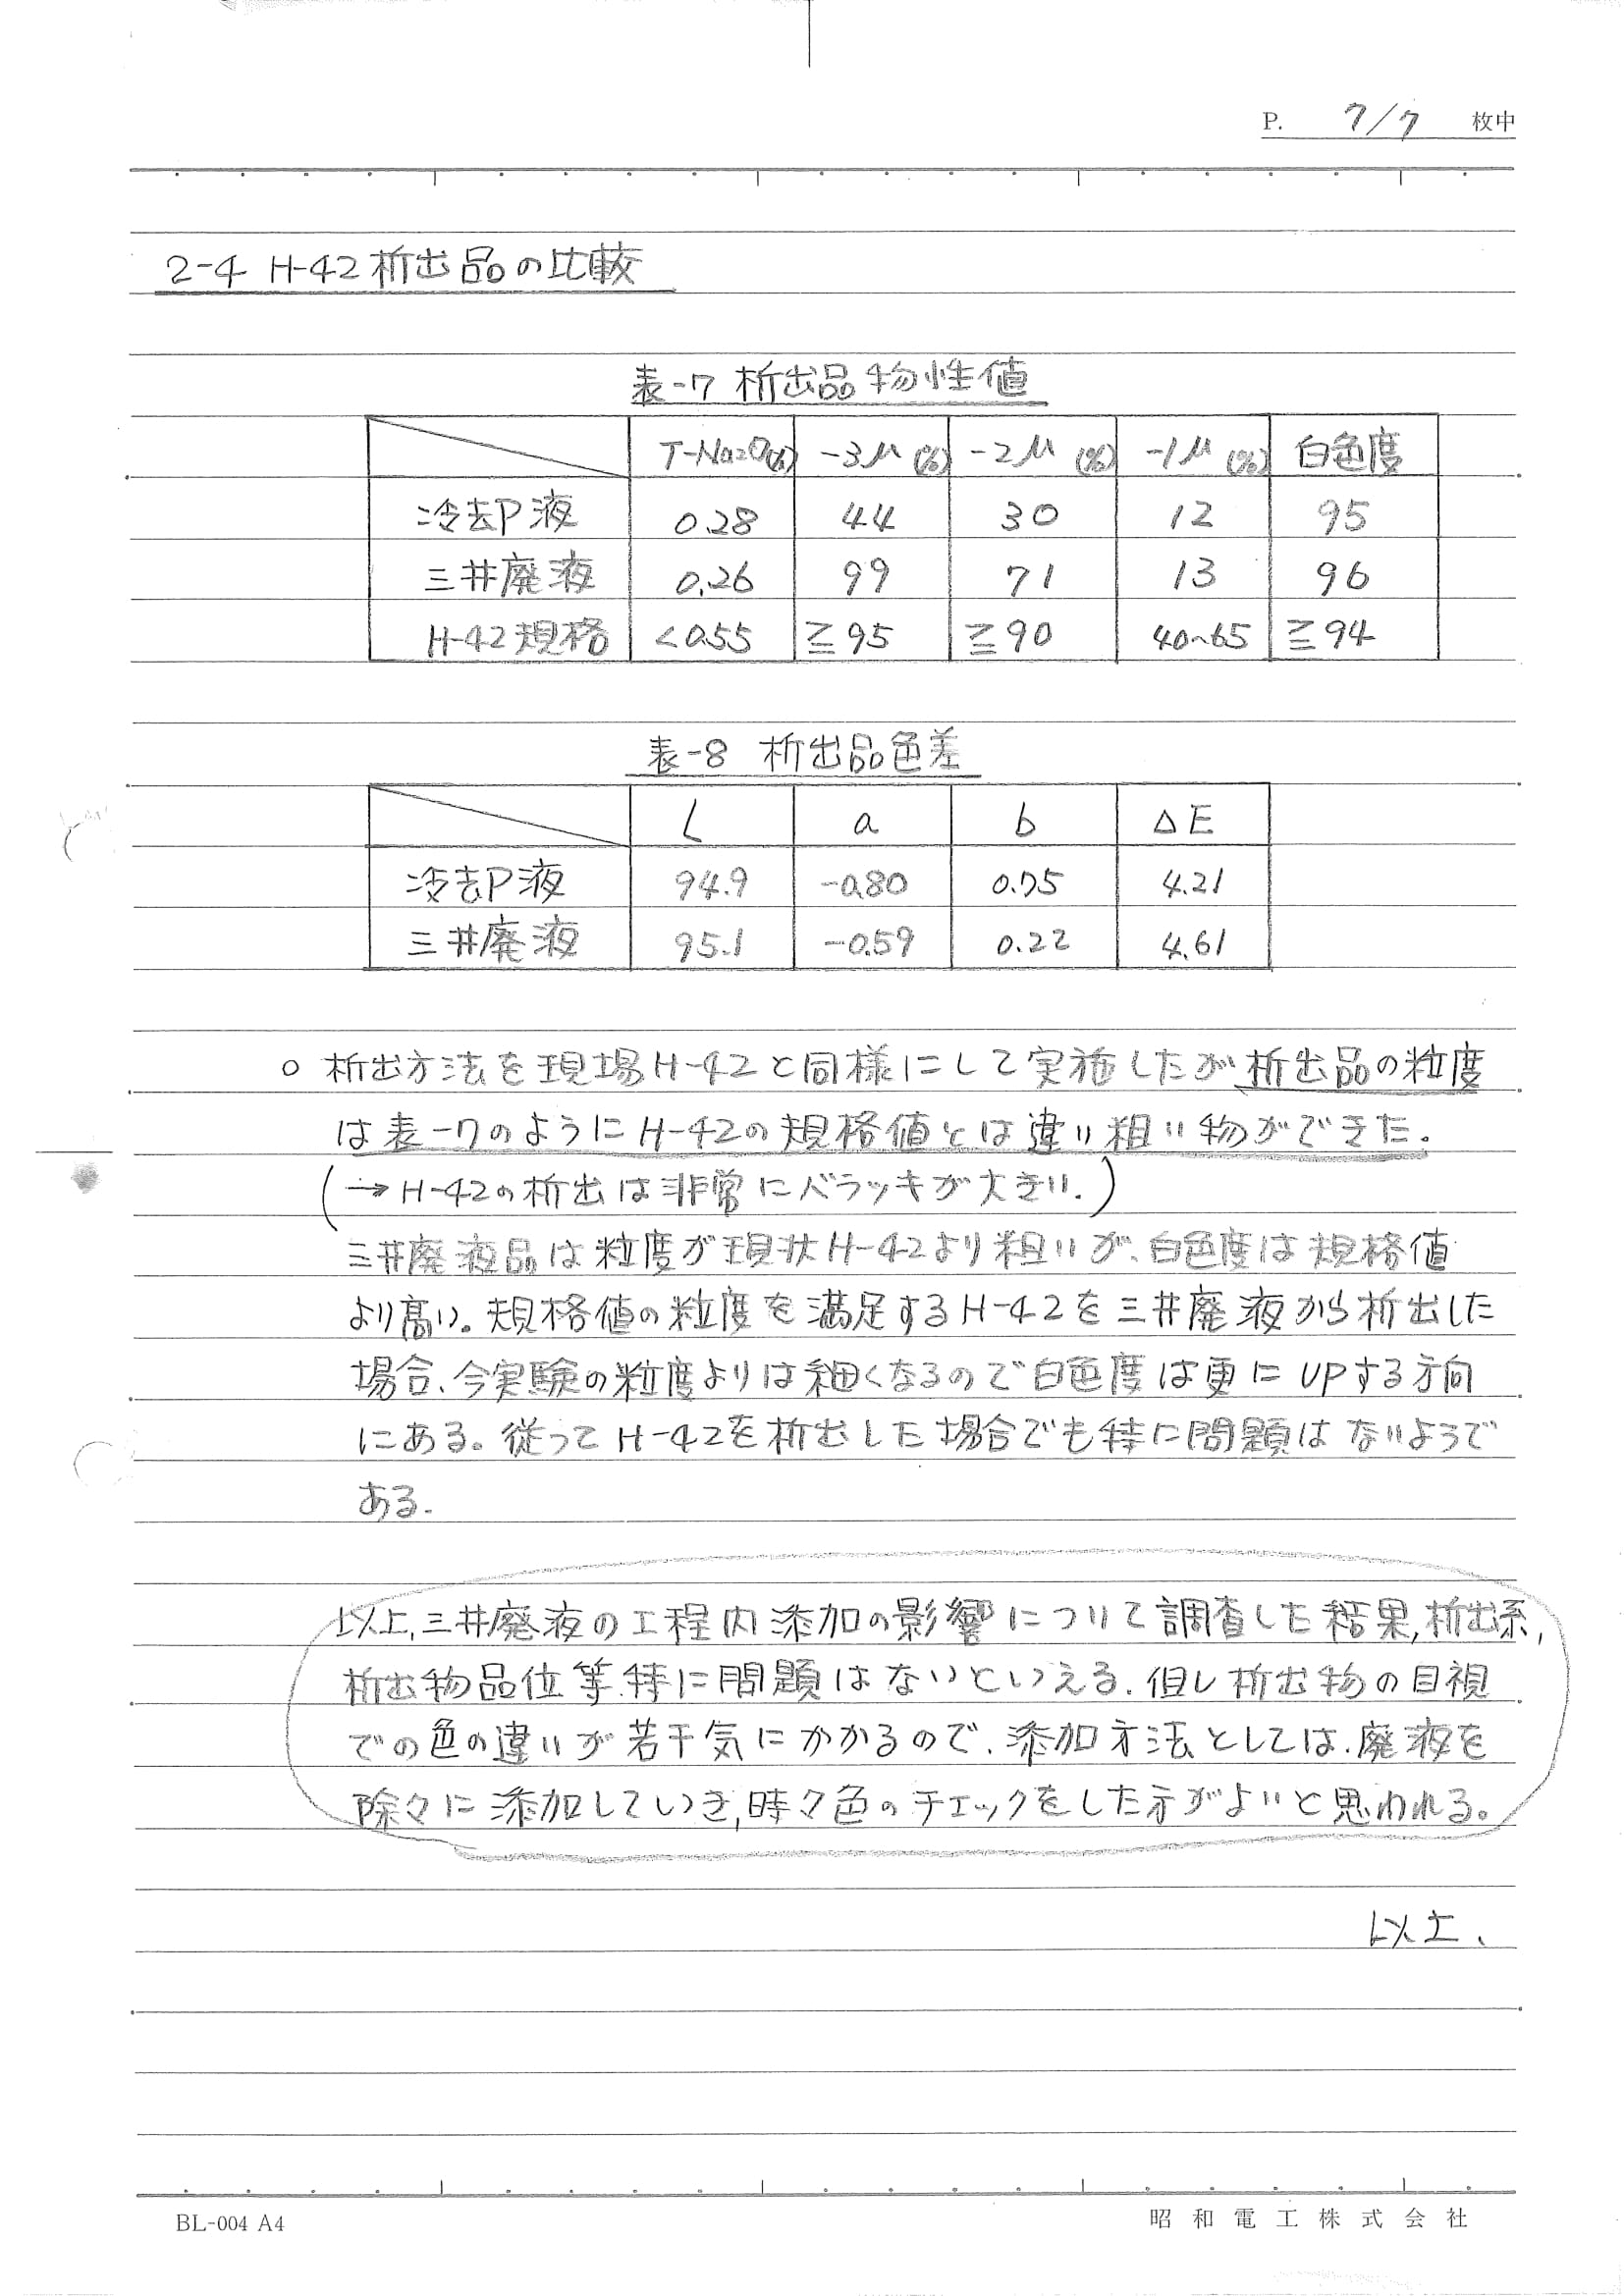 P. 7/7 枚中
2-4 H-42析出品の比較
表-7 析出品物性値
T-Na2O(%) -3μ(%) -2μ(%) -1μ(%) 白色度
冷却P液 0.28 44 30 12 95
三井廃液 0.26 99 71 13 96
H-42規格 <0.55 ≧95 ≧90 40~65 ≧94
表-8 析出品色差
L a b ΔE
冷却P液 94.9 -0.80 0.75 4.21
三井廃液 95.1 -0.59 0.22 4.61
○ 析出方法を現場H-42と同様にして実施したが析出品の粒度
は表-7のようにH-42の規格値とは違い粗い物ができた。
(→H-42の析出は非常にバラッキが大きい.)
三井廃液品は粒度が現状H-42より粗いが、白色度は規格値
より高い。規格値の粒度を満足するH-42を三井廃液から析出した
場合、今実験の粒度よりは細くなるので白色度は更にUPする方向
にある。従ってH-42を析出した場合でも特に問題はないようで
ある.
以上,三井廃液の工程内添加の影響について調査した結果,析出系,
析出物品位等特に問題はないといえる.但し析出物の目視
での色の違いが若干気にかかるので、添加方法としては、廃液を
除々に添加していき,時々色のチェックをした方がよいと思われる。
以上、
BL-004 A4
昭和電工株式会社